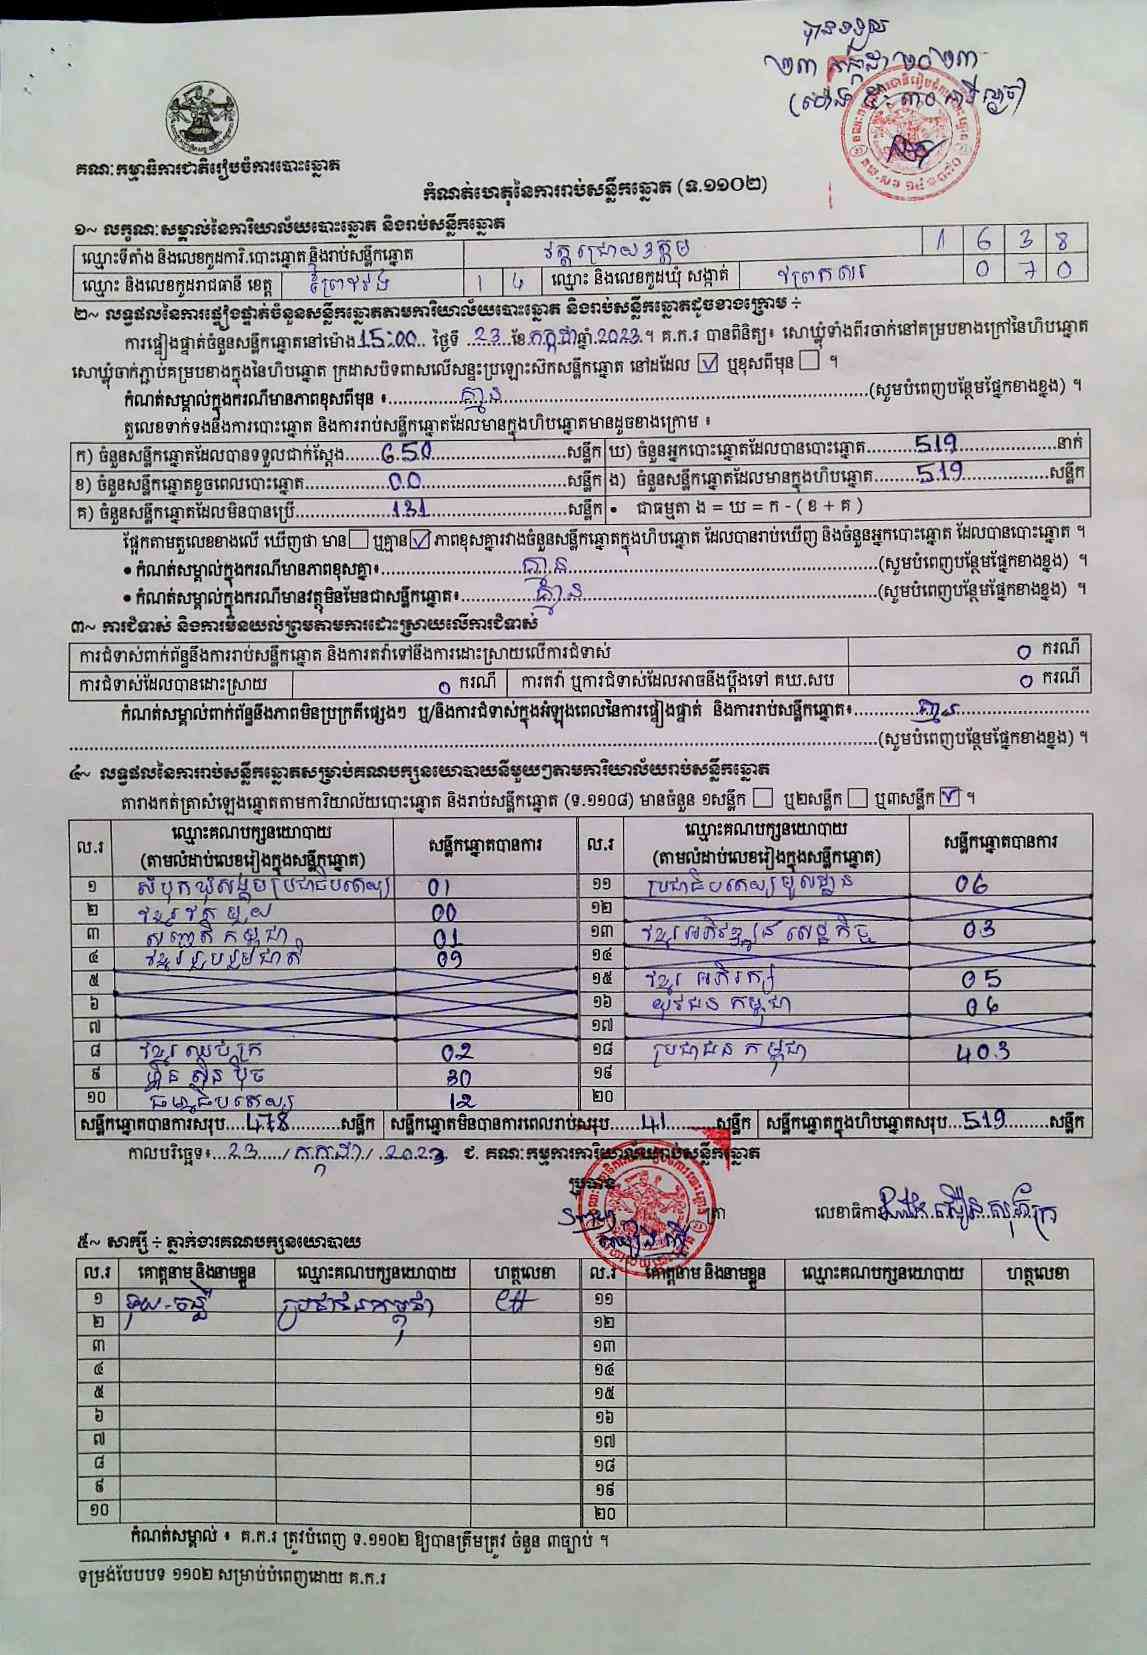 បានទទួល
២៣ កក្កដា ២០២៣
គណៈកម្មាធិការជាតិរៀបចំការបោះឆ្នោត
កំណត់ហេតុនៃការរាប់សន្លឹកឆ្នោត (ទ.១១០២)
១~ លក្ខណៈសម្គាល់នៃការិយាល័យបោះឆ្នោត និងរាប់សន្លឹកឆ្នោត
ឈ្មោះទីតាំង និងលេខកូដការិ.បោះឆ្នោត និងរាប់សន្លឹកឆ្នោត វត្តជ្រោយឧត្តម 1 6 3 8
ឈ្មោះ និងលេខកូដរាជធានី ខេត្ត ព្រៃវែង 1 4 ឈ្មោះ និងលេខកូដឃុំ សង្កាត់ 0 7 0
២~ លទ្ធផលនៃការផ្ទៀងផ្ទាត់ចំនួនសន្លឹកឆ្នោតតាមការិយាល័យបោះឆ្នោត និងរាប់សន្លឹកឆ្នោតដូចខាងក្រោម ÷
ការផ្ទៀងផ្ទាត់ចំនួនសន្លឹកឆ្នោតនៅម៉ោង 15:00 ថ្ងៃទី 23 ខែ កក្កដា ឆ្នាំ 2023 ។ គ.ក.រ បានពិនិត្យ៖ សោឃ្លុំទាំងពីរចាក់នៅគម្របខាងក្រៅនៃហិបឆ្នោត
សោឃ្លុំចាក់ភ្ជាប់គម្របខាងក្នុងនៃហិបឆ្នោត ក្រដាសបិទពាសលើសន្ទះប្រឡោះស៊កសន្លឹកឆ្នោត នៅដដែល ☑ ឬខុសពីមុន ☐ ។
កំណត់សម្គាល់ក្នុងករណីមានភាពខុសពីមុន ៖ គ្មាន (សូមបំពេញបន្ថែមផ្នែកខាងខ្នង) ។
តួលេខទាក់ទងនឹងការបោះឆ្នោត និងការរាប់សន្លឹកឆ្នោតដែលមានក្នុងហិបឆ្នោតមានដូចខាងក្រោម ៖
ក) ចំនួនសន្លឹកឆ្នោតដែលបានទទួលជាក់ស្តែង 650 សន្លឹក ឃ) ចំនួនអ្នកបោះឆ្នោតដែលបានបោះឆ្នោត 519 នាក់
ខ) ចំនួនសន្លឹកឆ្នោតខូចពេលបោះឆ្នោត 00 សន្លឹក ង) ចំនួនសន្លឹកឆ្នោតដែលមានក្នុងហិបឆ្នោត 519 សន្លឹក
គ) ចំនួនសន្លឹកឆ្នោតដែលមិនបានប្រើ 131 សន្លឹក • ជាធម្មតា ង = ឃ = ក - ( ខ + គ )
ផ្អែកតាមតួលេខខាងលើ ឃើញថា មាន ☐ ឬគ្មាន ☑ ភាពខុសគ្នារវាងចំនួនសន្លឹកឆ្នោតក្នុងហិបឆ្នោត ដែលបានរាប់ឃើញ និងចំនួនអ្នកបោះឆ្នោត ដែលបានបោះឆ្នោត ។
• កំណត់សម្គាល់ក្នុងករណីមានភាពខុសគ្នា៖ គ្មាន (សូមបំពេញបន្ថែមផ្នែកខាងខ្នង) ។
• កំណត់សម្គាល់ក្នុងករណីមានវត្ថុមិនមែនជាសន្លឹកឆ្នោត៖ គ្មាន (សូមបំពេញបន្ថែមផ្នែកខាងខ្នង) ។
៣~ ការជំទាស់ និងការមិនយល់ព្រមតាមការដោះស្រាយលើការជំទាស់
ការជំទាស់ពាក់ព័ន្ធនឹងការរាប់សន្លឹកឆ្នោត និងការតវ៉ាទៅនឹងការដោះស្រាយលើការជំទាស់ 0 ករណី
ការជំទាស់ដែលបានដោះស្រាយ 0 ករណី ការតវ៉ា ឬការជំទាស់ដែលអាចនឹងប្តឹងទៅ គឃ.សប 0 ករណី
កំណត់សម្គាល់ពាក់ព័ន្ធនឹងភាពមិនប្រក្រតីផ្សេងៗ ឬ/និងការជំទាស់ក្នុងអំឡុងពេលនៃការផ្ទៀងផ្ទាត់ និងការរាប់សន្លឹកឆ្នោត៖ គ្មាន
(សូមបំពេញបន្ថែមផ្នែកខាងខ្នង) ។
៤~ លទ្ធផលនៃការរាប់សន្លឹកឆ្នោតសម្រាប់គណបក្សនយោបាយនីមួយៗតាមការិយាល័យរាប់សន្លឹកឆ្នោត
តារាងកត់ត្រាសំឡេងឆ្នោតតាមការិយាល័យបោះឆ្នោត និងរាប់សន្លឹកឆ្នោត (ទ.១១០៨) មានចំនួន ១សន្លឹក ☐ ឬ២សន្លឹក ☐ ឬ៣សន្លឹក ☑ ។
ល.រ ឈ្មោះគណបក្សនយោបាយ (តាមលំដាប់លេខរៀងក្នុងសន្លឹកឆ្នោត) សន្លឹកឆ្នោតបានការ ល.រ ឈ្មោះគណបក្សនយោបាយ (តាមលំដាប់លេខរៀងក្នុងសន្លឹកឆ្នោត) សន្លឹកឆ្នោតបានការ
១ សំបុកឃ្មុំសង្គមប្រជាធិបតេយ្យ 01 ១១ ប្រជាធិបតេយ្យមូលដ្ឋាន 06
២ ខ្មែរតែមួយ 00 ១២
៣ សញ្ជាតិកម្ពុជា 01 ១៣ ខ្មែរអភិវឌ្ឍន៍សេដ្ឋកិច្ច 03
៤ ខ្មែររួបរួមជាតិ 09 ១៤
៥ ១៥ ខ្មែរអភិរក្ស 05
៦ ១៦ យុវជនកម្ពុជា 06
៧ ១៧
៨ ខ្មែរឈប់ក្រ 02 ១៨ ប្រជាជនកម្ពុជា 403
៩ ហ៊្វុនស៊ិនប៉ិច 30 ១៩
១០ ធម្មាធិបតេយ្យ 12 ២០
សន្លឹកឆ្នោតបានការសរុប 478 សន្លឹក សន្លឹកឆ្នោតមិនបានការពេលរាប់សរុប 41 សន្លឹក សន្លឹកឆ្នោតក្នុងហិបឆ្នោតសរុប 519 សន្លឹក
កាលបរិច្ឆេទ៖ 23 / កក្កដា / 2023 ជ. គណៈកម្មការការិយាល័យរាប់សន្លឹកឆ្នោត
ប្រធាន លេខាធិការ
៥~ សាក្សី ÷ ភ្នាក់ងារគណបក្សនយោបាយ
ល.រ គោត្តនាម និងនាមខ្លួន ឈ្មោះគណបក្សនយោបាយ ហត្ថលេខា ល.រ គោត្តនាម និងនាមខ្លួន ឈ្មោះគណបក្សនយោបាយ ហត្ថលេខា
១ ប្រជាជនកម្ពុជា ១១
២ ១២
៣ ១៣
៤ ១៤
៥ ១៥
៦ ១៦
៧ ១៧
៨ ១៨
៩ ១៩
១០ ២០
កំណត់សម្គាល់ ៖ គ.ក.រ ត្រូវបំពេញ ទ.១១០២ ឱ្យបានត្រឹមត្រូវ ចំនួន ៣ច្បាប់ ។
ទម្រង់បែបបទ ១១០២ សម្រាប់បំពេញដោយ គ.ក.រ